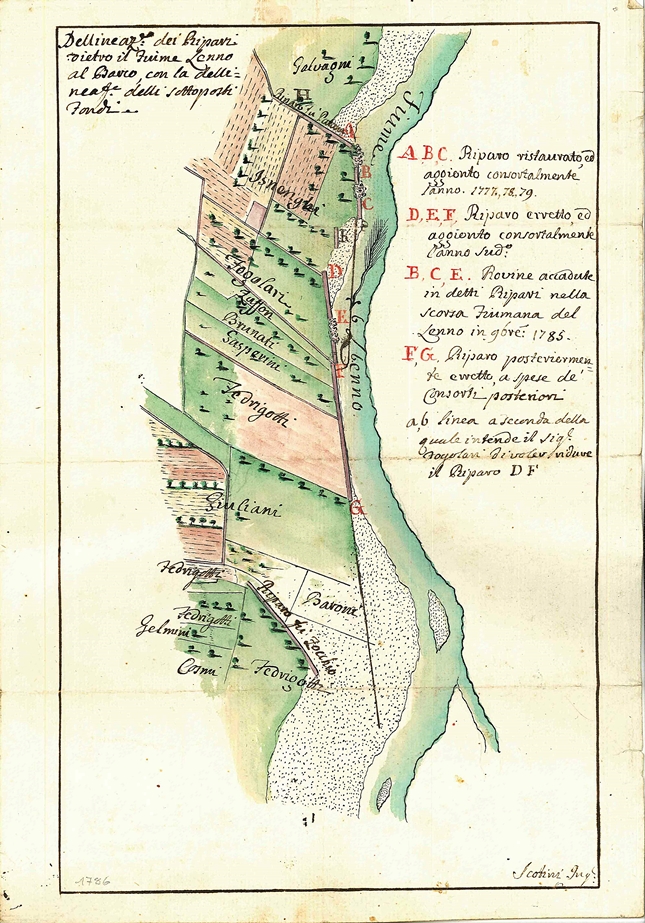 Dellineaz.ne dei Ripari
dietro il Fiume Lenno
al Barco, con la delli=
neaz.ne delli sottoposti
Fondi
Galvagni
H
Riparo in
A
Fiume
B
Isnenghi
C
K
D
Togolari
E
Zaffon
Brunati
Gasperini
F
a b
Lenno
Fedrigotti
Giuliani
G
Fedrigotti
Baroni
Riparo
Fedrigotti
Gelmini
Cosmi
Fedrigotti
A, B, C. Riparo ristaurato, ed
aggionto consortalmente
l'anno. 1777, 78, 79.
D, E, F, Riparo erretto, ed
aggionto consortalmente
l'anno sud.o
B, C, E. Rovine accadute
in detti Ripari nella
scorsa Fiumana del
Lenno in 9bre. 1785.
F, G, Riparo posteriormen=
te erretto, a spese de'
Consorti posteriori
a, b linea a seconda della
quale intende il sig.r
Togolari di voler ridurre
il Riparo D F
1786
Scotini Ing.r